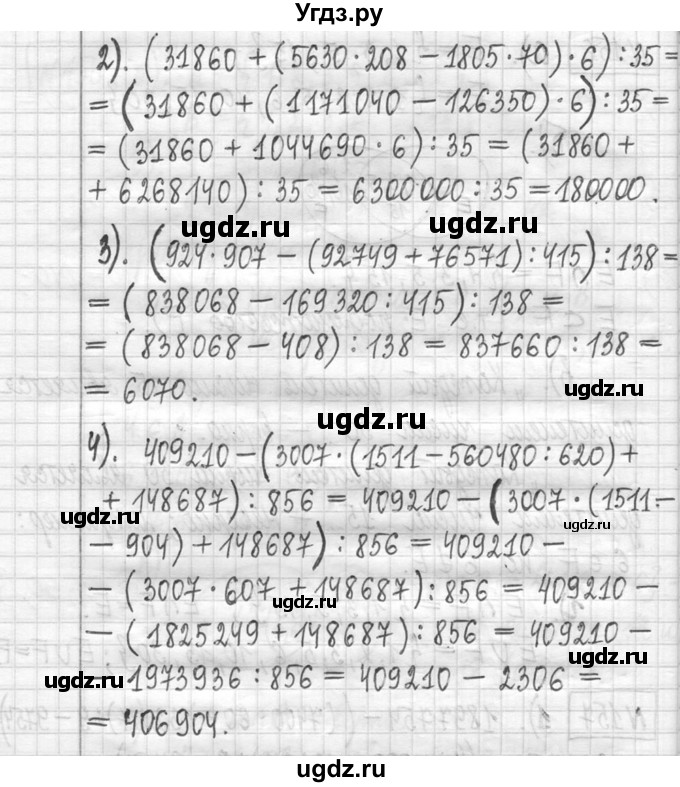 Угдз.ру
2). (31860 + (5630 · 208 − 1805 · 70) · 6) : 35 =
= (31860 + (1171040 − 126350) · 6) : 35 =
= (31860 + 1044690 · 6) : 35 = (31860 +
+ 6268140) : 35 = 6300000 : 35 = 180000.
ugdz.ru ugdz.ru
3). (924 · 907 − (92749 + 76571) : 415) : 138 =
= (838068 − 169320 : 415) : 138 =
= (838068 − 408) : 138 = 837660 : 138 =
= 6070.
ugdz.ru
ugdz.ru
4). 409210 − (3007 · (1511 − 560480 : 620) +
+ 148687) : 856 = 409210 − (3007 · (1511 −
ugdz.ru ugdz.ru
− 904) + 148687) : 856 = 409210 −
− (3007 · 607 + 148687) : 856 = 409210 −
ugdz.ru
− (1825249 + 148687) : 856 = 409210 −
ugdz.ru
− 1973936 : 856 = 409210 − 2306 =
ugdz.ru
= 406904.
ugdz.ru